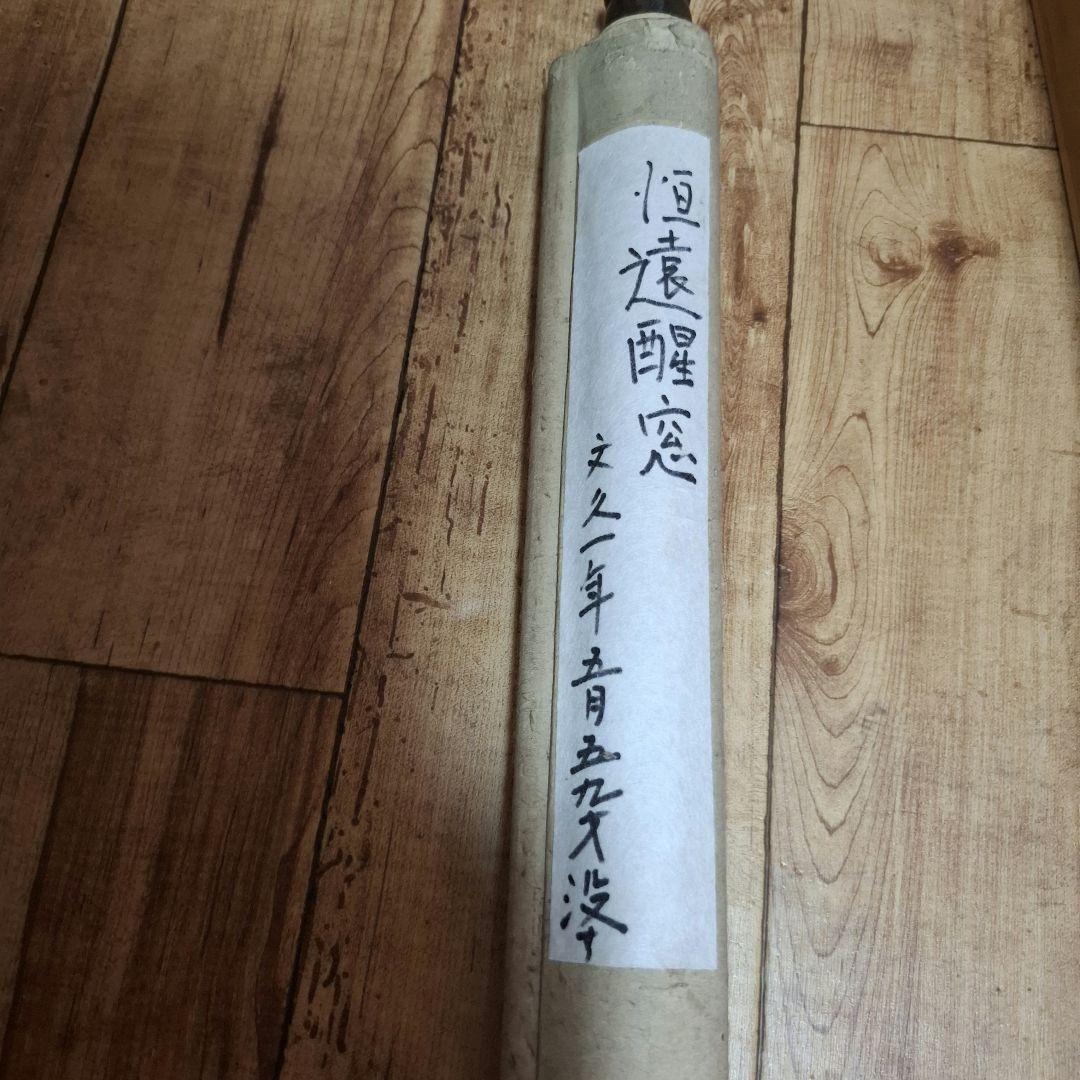 恒遠醒窓
文久一年五月五九才没